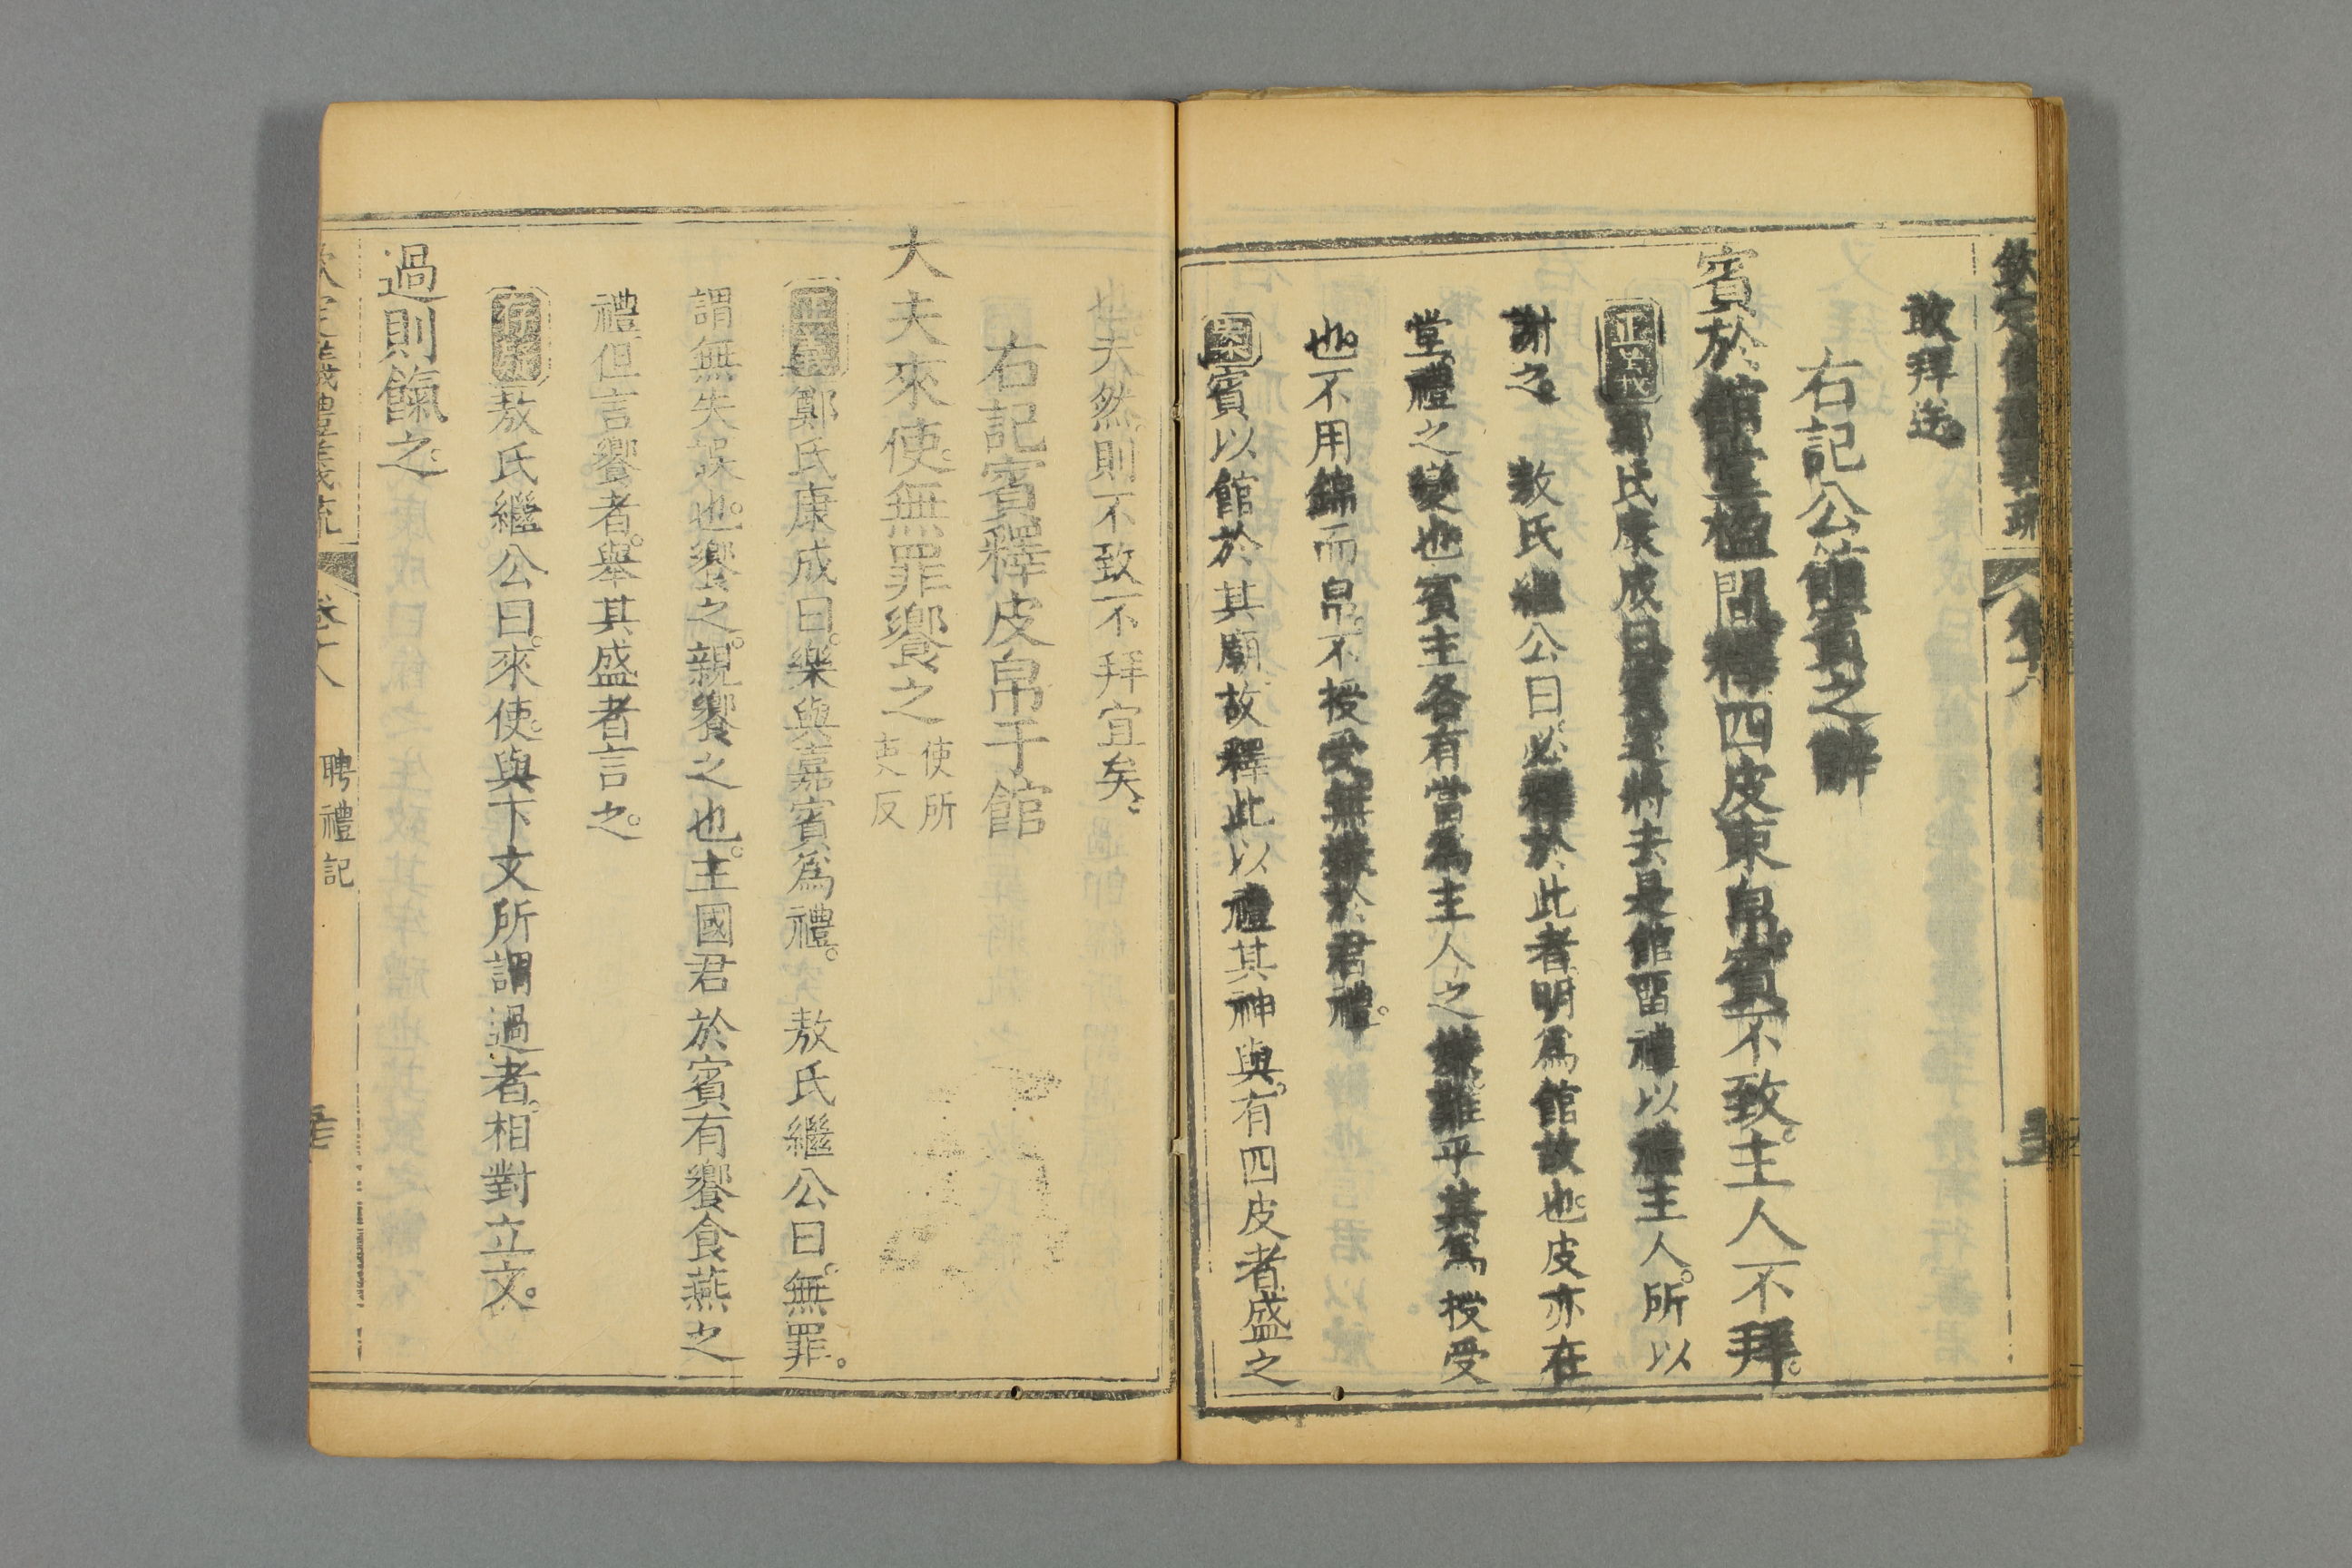 欽定儀禮義疏 卷十八
敢拜送
右記公館賓之辭
賓於館堂楹間釋四皮束帛賓不致主人不拜
正義鄭氏康成曰賓將去是館留禮以禮主人所以
謝之 敖氏繼公曰必釋於此者明爲館故也皮亦在
堂禮之變也賓主各有當爲主人之嫌難乎其爲授受
也不用錦而帛不授受無嫌於君禮
案賓以館於其廟故釋此以禮其神與有四皮者盛之
也夫然則不致不拜宜矣
右記賓釋皮帛于館
大夫來使無罪饗之使所吏反
正義鄭氏康成曰樂與嘉賓爲禮 敖氏繼公曰無罪
謂無失誤也饗之親饗之也主國君於賓有饗食燕之
禮但言饗者舉其盛者言之
存疑敖氏繼公曰來使與下文所謂過者相對立文
過則餼之
欽定儀禮義疏 卷十八 聘禮記